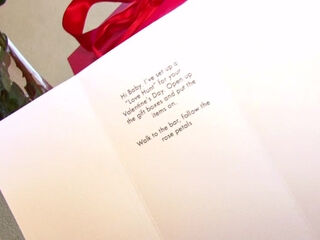 Hi Baby, I've set up a
"Love Hunt" for your
Valentine's Day. Open up
the gift boxes and put the
items on.
Walk to the bar, follow the
rose petals